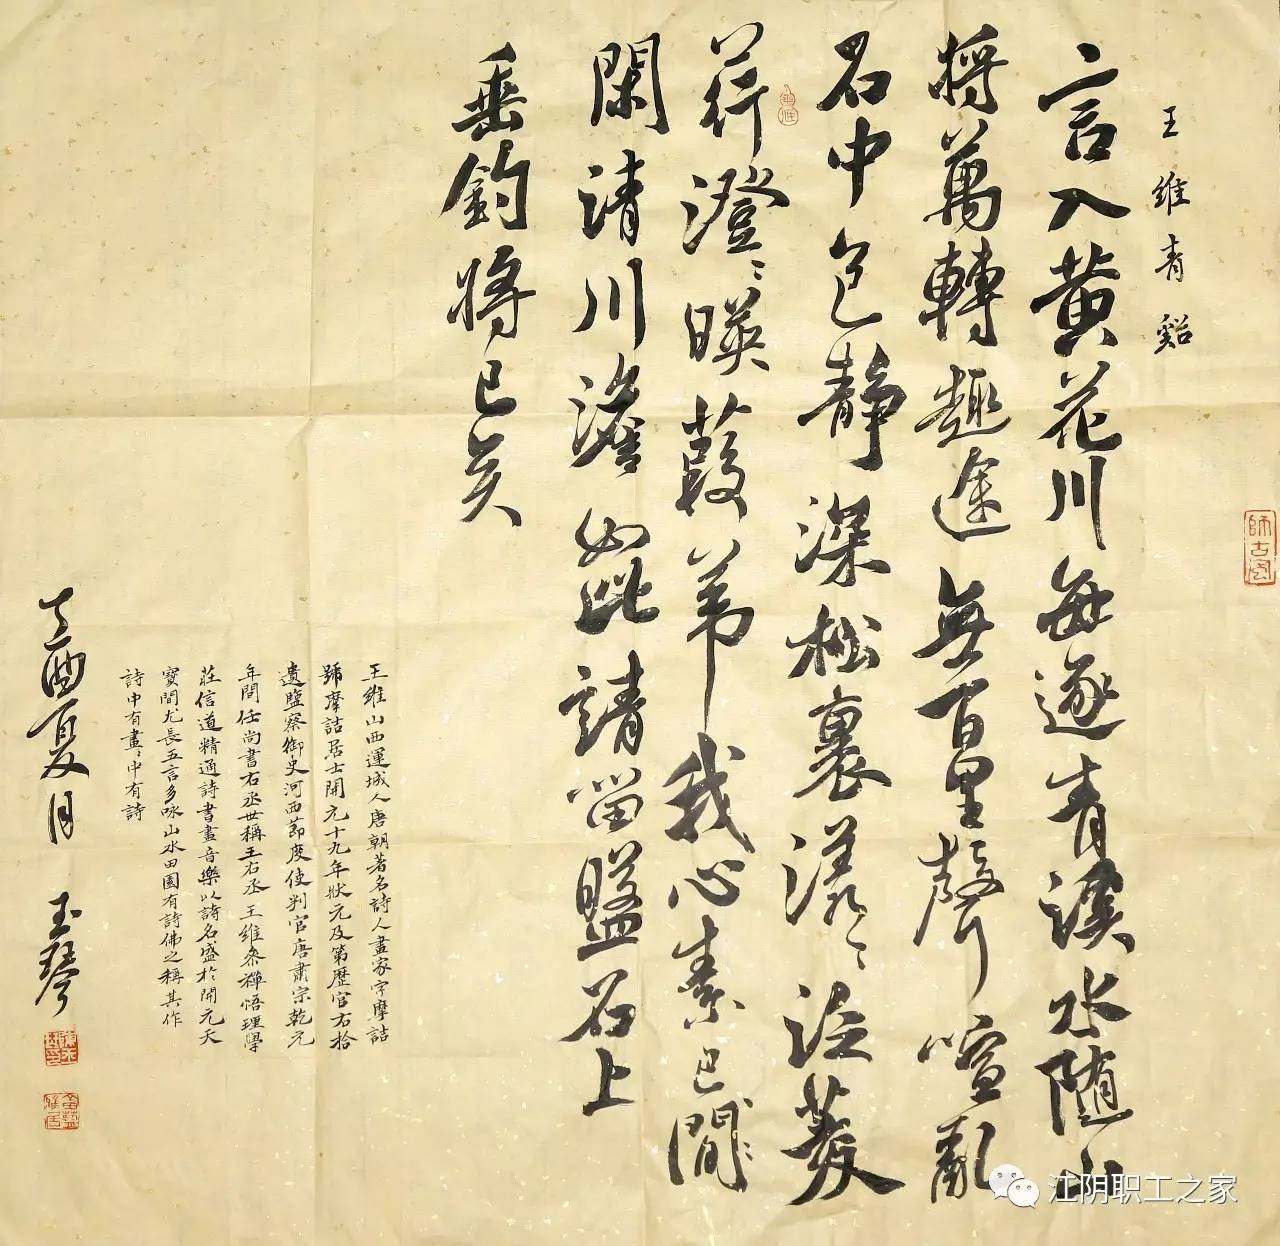 王維青谿
言入黄花川每逐青溪水随山
將萬轉趣途無百里聲喧亂
石中色静深松裏漾〻泛菱
荇澄〻暎葭葦我心素已間
閑清川澹如此請留盤石上
垂釣將已矣
王維山西運城人唐朝著名詩人畫家字摩詰
號摩詰居士開元十九年狀元及第歷官右拾
遺監察御史河西節度使判官唐肅宗乾元
年間任尚書右丞世稱王右丞王維參禪悟理學
莊信道精通詩書畫音樂以詩名盛於開元天
寶間尤長五言多咏山水田園有詩佛之稱其作
詩中有畫〻中有詩
酉夏月 玉琴
師古
江阴职工之家